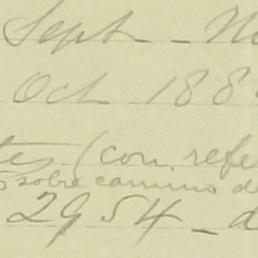 Sept - No
Oct 188
tes (con refe
sobre camino de
2954 - d